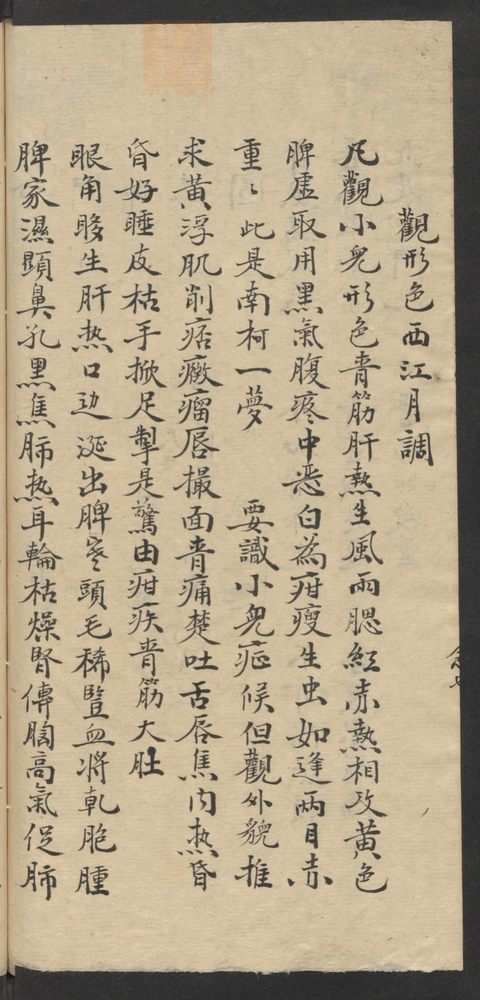 觀形色西江月調
凡觀小兒形色青筋肝熱生風兩腮紅赤熱相攻黃色
脾虛取用黑氣腹疼中惡白為疳瘦生虫如逢兩目赤
重〻此是南柯一夢　　要識小兒症候但觀外貌推
求黃浮肌削痞癥瘤唇撮面青痛楚吐舌唇焦內热昏
昏好睡皮枯手掀足掣是驚由疳疾青筋大肚
眼角眵生肝热口边涎出脾寒頭毛稀豎血將乾胞腫
脾家濕顯鼻孔黑焦肺热耳輪枯燥腎傳胸高氣促肺